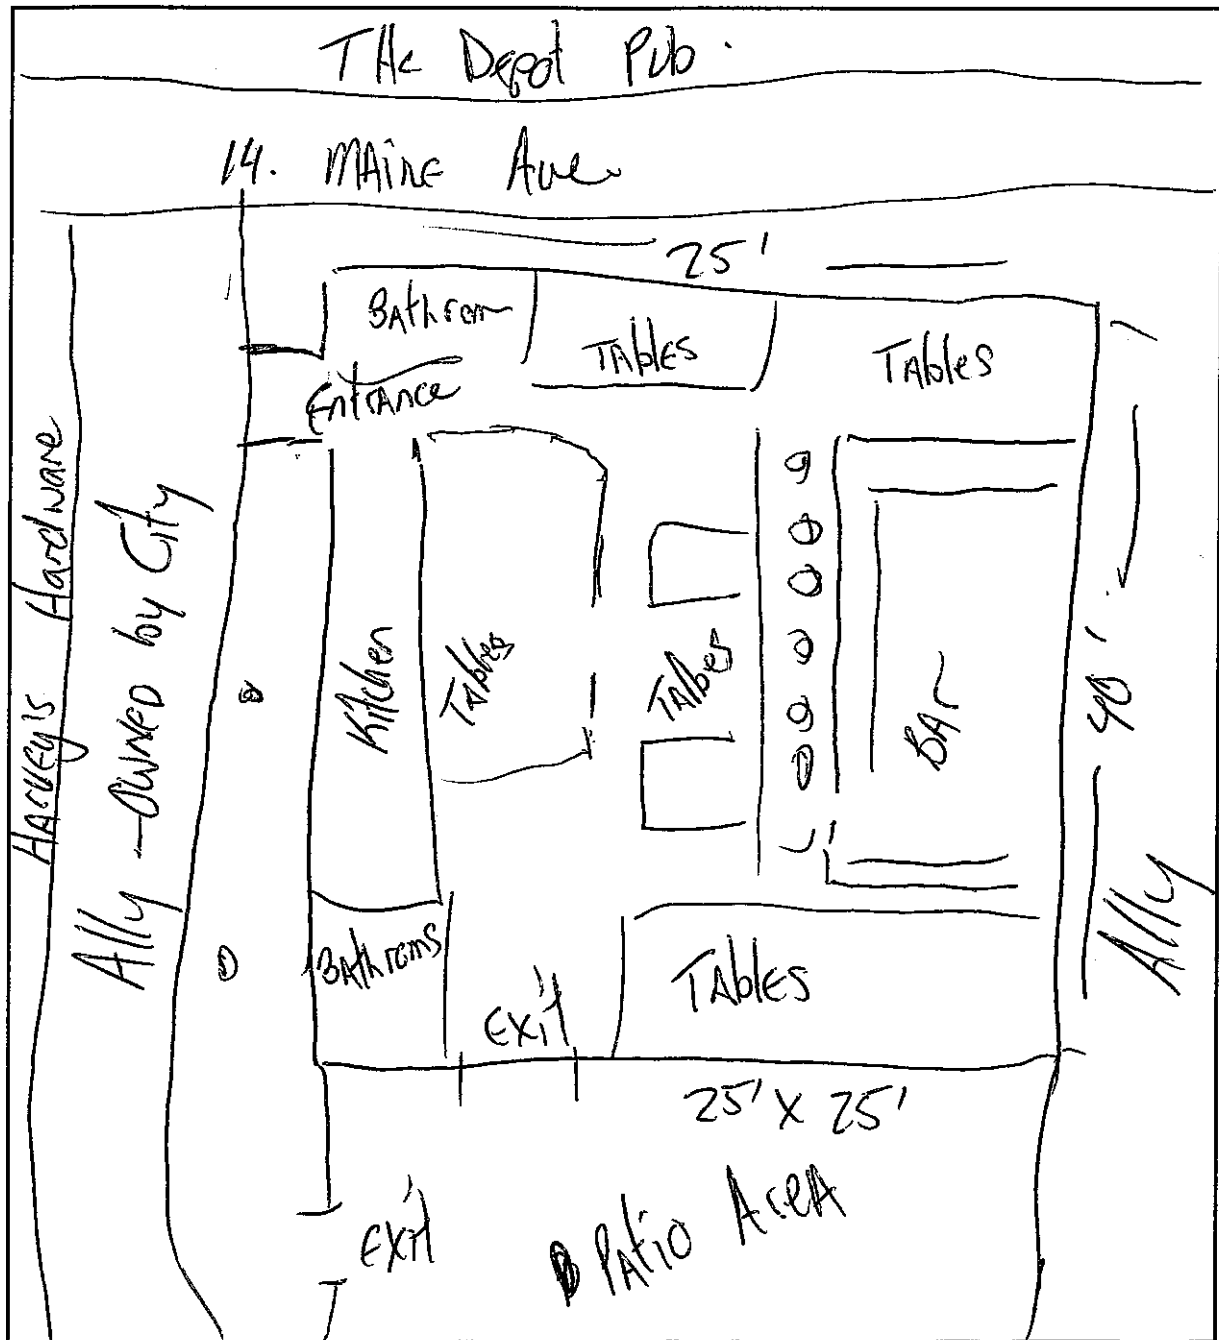 THe Depot Pub.
14. MAinE Ave.
25'
BAthrom
TAbles
TAbles
EntrAnce
Harvey's Hardware
Ally - OWNED by City
Kitchen
TAbles
TAbles
BAr
40'
Ally
BAthroms
Exit
TAblES
25' X 25'
Exit
PAtio AreA